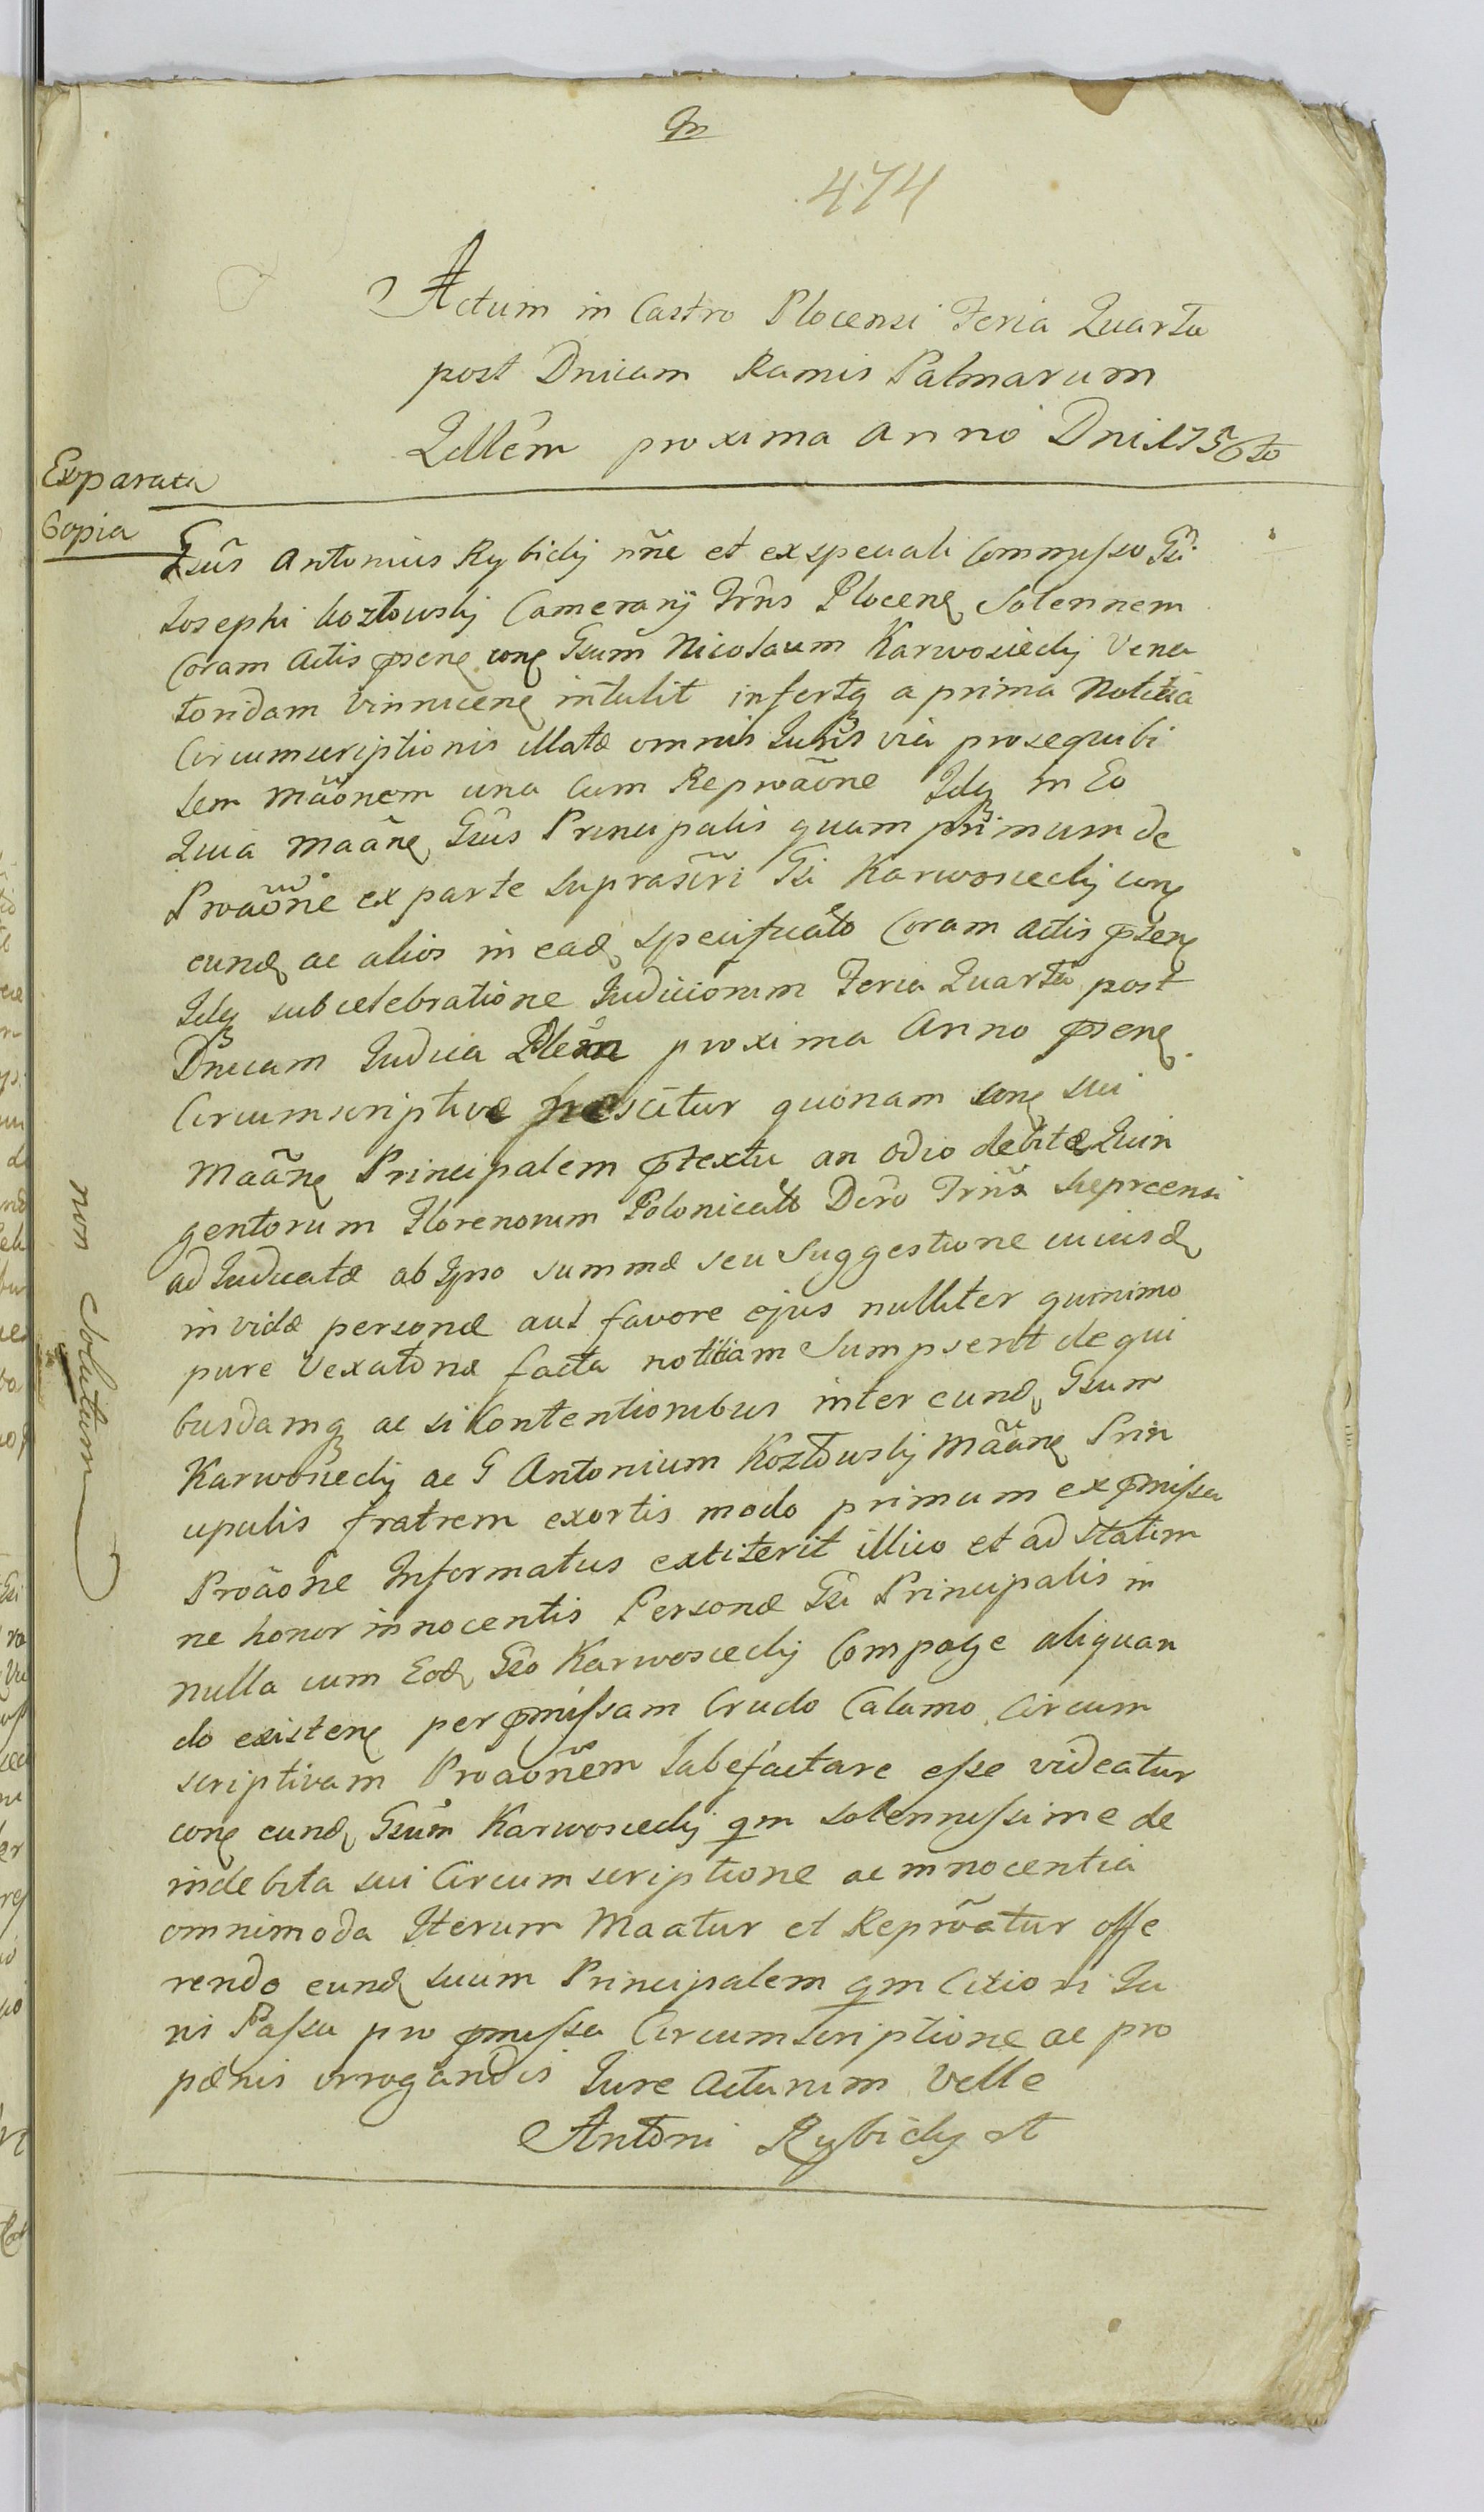 In
474
Actum in Castro Plocensi Feria Quarta
post Dnicam Ramis Palmarum
Qdlem proxima anno Dni 1756to
Exparata
Copia
Gsus Antonius Rybickj nñe et ex speciali Commisso Gsi
Josephi Kozłowskj Cameranÿ Trrñs Plocenę Solennem
Coram Actis pñsenę conę Gsum Nicolaum Karwosieckj Vena
toridam Vinnicenę intulit insertę a prima Notitia
Circumscriptionis illatæ omnis Juris via prosequibi
lem Mãõnem una Cum Reprõãõne Idq in Eo
Quia Maãnę Gsus Principalis quam primum de
Prõãõne ex parte suprascri Gsi Karwosieckj conę
eund ac alios in ead specificato Coram actis pñsenę
Idq sub celebratione Judiciorum Feria Quarta post
Dnicam Judica Qdlem proxima Anno pñsenę
Circumscriptivæ nescitur quonam conę sui
Maãnę Principalem ptextu an odio debitæ Quin
gentorum Florenorum Polonicalo Dero Trñs Sieprcensi
adJudicatæ ab Ipso summæ seu Suggestione cuiusd
invidæ personæ aut favore ejus nulliter quinimo
pure Vexatoriæ facta notitiam Sumpserit de qui
busdamq ac si Contentionibus inter eund Gsum
Karwosieckj ac G Antonium Kozłowskj Mããnę Prin
cipalis fratrem exortis modo primum ex pmissa
Proãõne Informatus extiterit illico et ad statim
ne honor innocentis Personæ Gsi Principalis in
nulla cum Eod Gso Karwosieckj Compage aliquan
do existenę per pmissam Crudo Calamo Circum
scriptivam Proaõnem labefactare esse videatur
conę eund Gsum Karwosieckj qm solennissime de
indebita sui Circumscriptione ac innocentia
omnimoda Iterum Maatur et Reprõatur offe
rendo eund suum Principalem qm Citiori Ju
ris Passu pro pmissa Circumscriptione ac pro
pœnis irrogandis Jure Acturum Velle
Antoni Rybickj mp
non Solutum